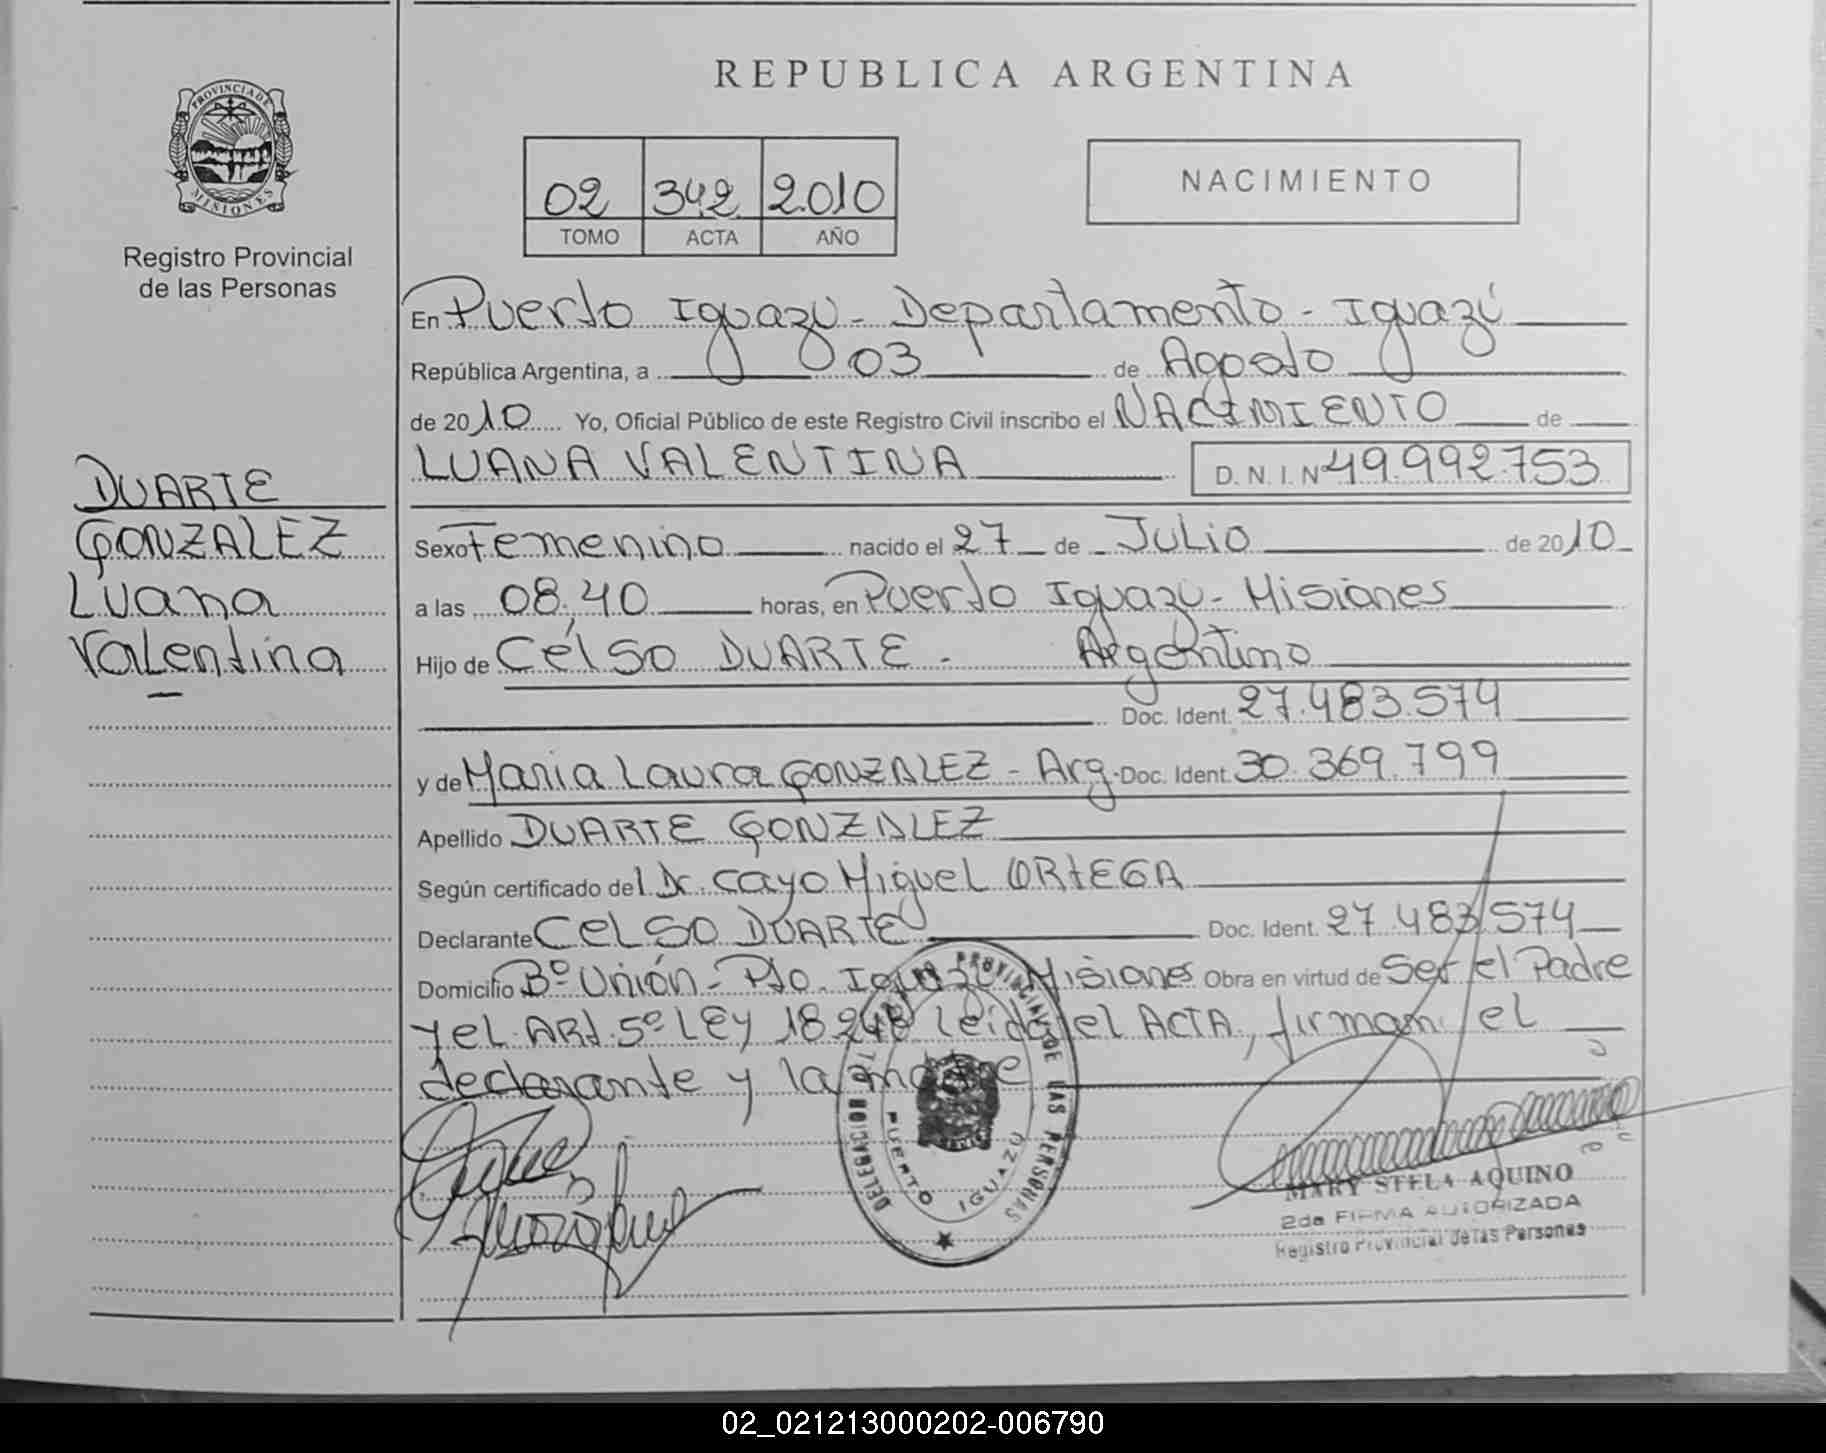 REPUBLICA ARGENTINA
PROVINCIA DE
MISIONES
Registro Provincial
de las Personas
02 342 2010
TOMO ACTA AÑO
NACIMIENTO
En Puerto Iguazú - Departamento - Iguazú
República Argentina, a 03 de Agosto
de 2010 Yo, Oficial Público de este Registro Civil inscribo el NACIMIENTO de
LUANA VALENTINA D. N. I. N 49.992.753
DUARTE
GONZALEZ
Luana
Valentina
Sexo Femenino nacido el 27 de Julio de 2010
a las 08,40 horas, en Puerto Iguazú - Misiones
Hijo de Celso DUARTE - Argentino
Doc. Ident. 27.483.574
y de Maria Laura GONZALEZ - Arg. Doc. Ident. 30.369.799
Apellido DUARTE GONZALEZ
Según certificado del Dr. Cayo Miguel ORTEGA
Declarante CELSO DUARTE Doc. Ident. 27.483.574
Domicilio Bº Unión - Pto. Iguazú Misiones Obra en virtud de Ser el Padre
y el ARt. 5º LEy 18.248 leida el ACTA, firman el
declarante y la madre
DELEGACION PROVINCIAL DE LAS PERSONAS
PUERTO IGUAZU
MARY STELA AQUINO
2da FIRMA AUTORIZADA
Registro Provincial de las Personas
02_021213000202-006790